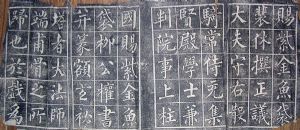 賜紫金魚袋
裴休撰正議
大夫守右散
騎常侍充集
賢殿學士兼
判院事上柱
國賜紫金魚
袋柳公權書
并篆額玄秘
塔者大法師
端甫靈骨之所
歸也於戲為